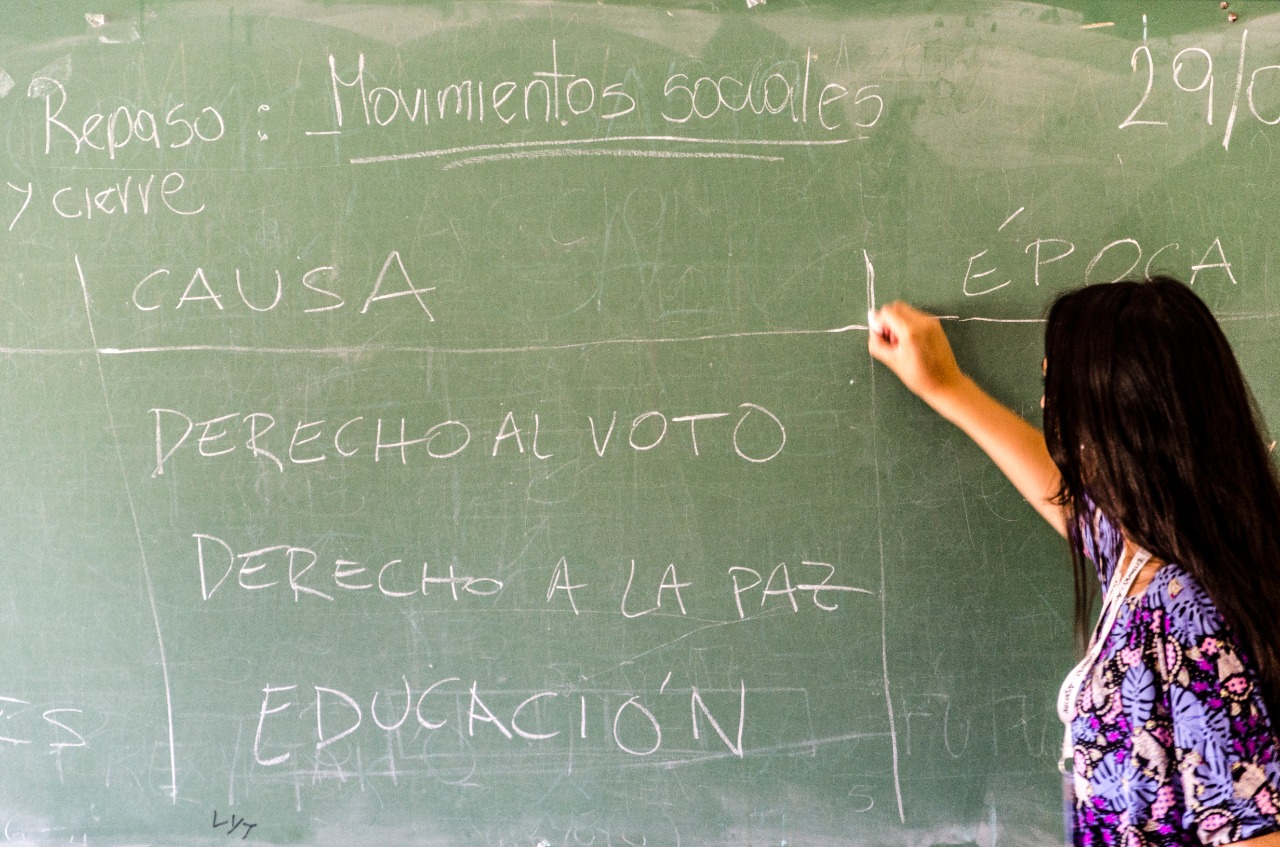 Repaso: Movimientos sociales 29/0
y cierre
CAUSA ÉPOCA
DERECHO AL VOTO
DERECHO A LA PAZ
EDUCACIÓN
ES
LYT